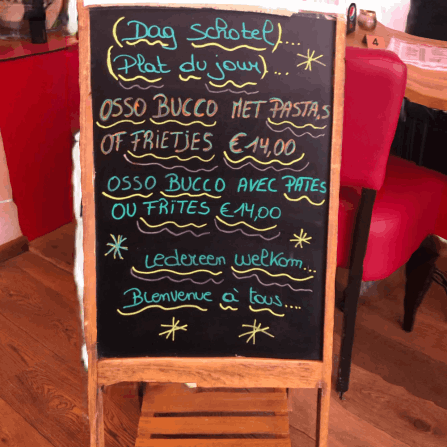 (Dag schotel)...
(Plat du jour)...
OSSO BUCCO MET PASTA,S
OF FRIETJES €14,00
OSSO BUCCO AVEC PATES
OU FRITES €14,00
iedereen welkom...
Bienvenue à tous....